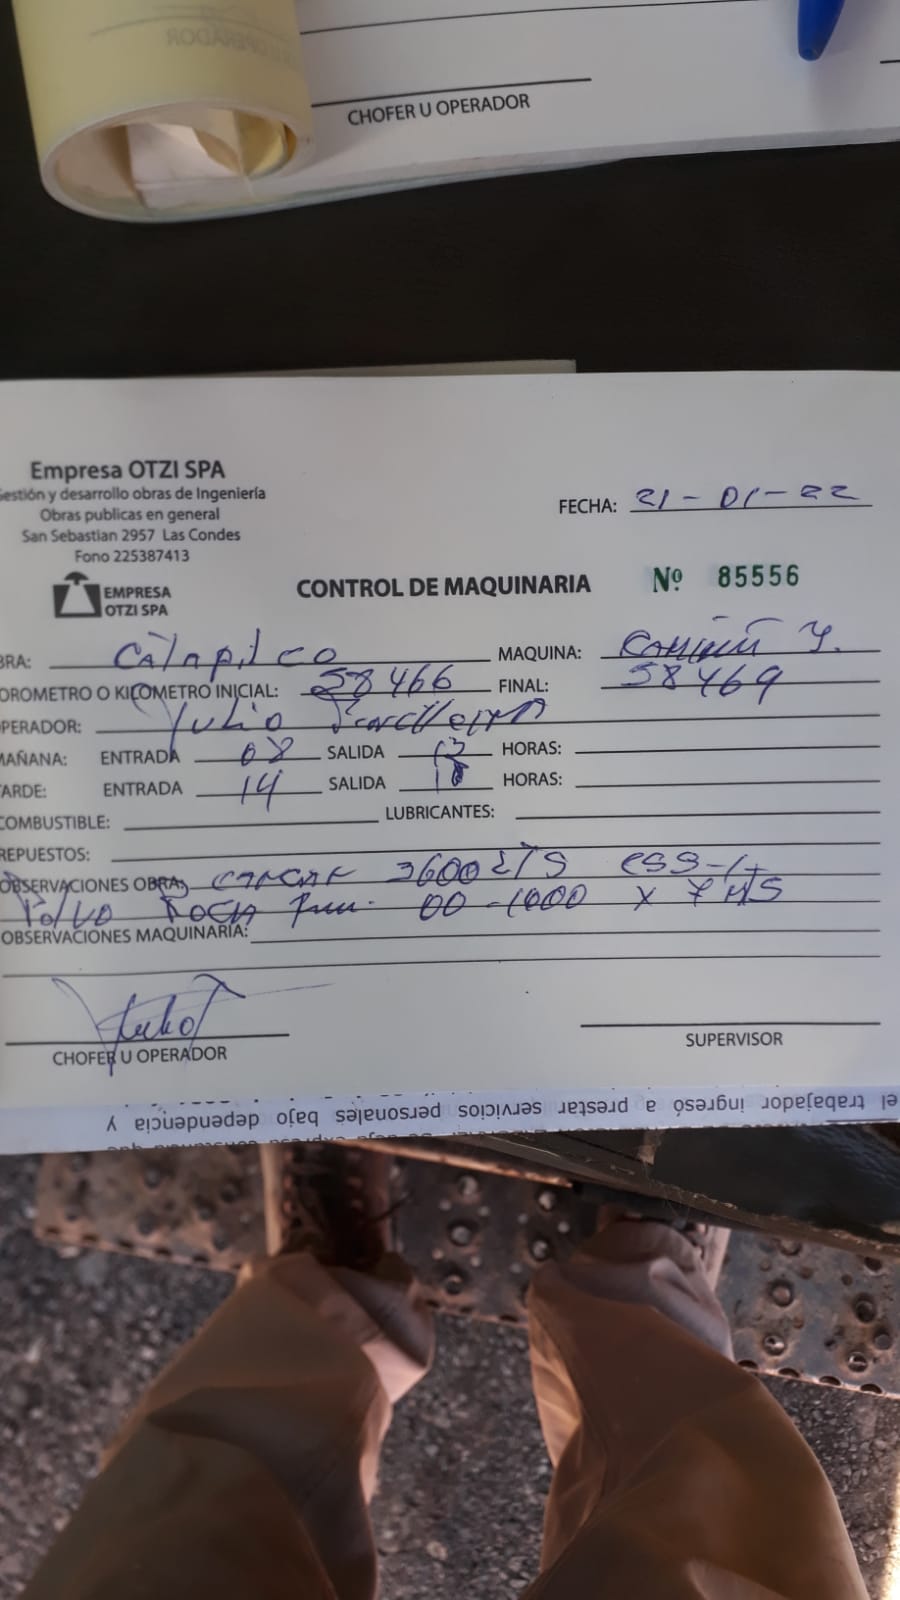 CHOFER U OPERADOR
Empresa OTZI SPA
Gestión y desarrollo obras de Ingeniería
Obras publicas en general
San Sebastian 2957 Las Condes
Fono 225387413
EMPRESA
OTZI SPA
FECHA: 21-01-22
CONTROL DE MAQUINARIA Nº 85556
BRA: Catapilco MAQUINA:
OROMETRO O KILOMETRO INICIAL: 58466 FINAL: 58469
PERADOR: Julio
MAÑANA: ENTRADA 08 SALIDA 13 HORAS:
ARDE: ENTRADA 14 SALIDA 18 HORAS:
COMBUSTIBLE: LUBRICANTES:
REPUESTOS:
OBSERVACIONES OBRA: 3600 LTS CSS-1
POLVO ROCA 00-1000 X 7
OBSERVACIONES MAQUINARIA:
CHOFER U OPERADOR
SUPERVISOR
el trabajador ingresó a prestar servicios personales bajo dependencia y